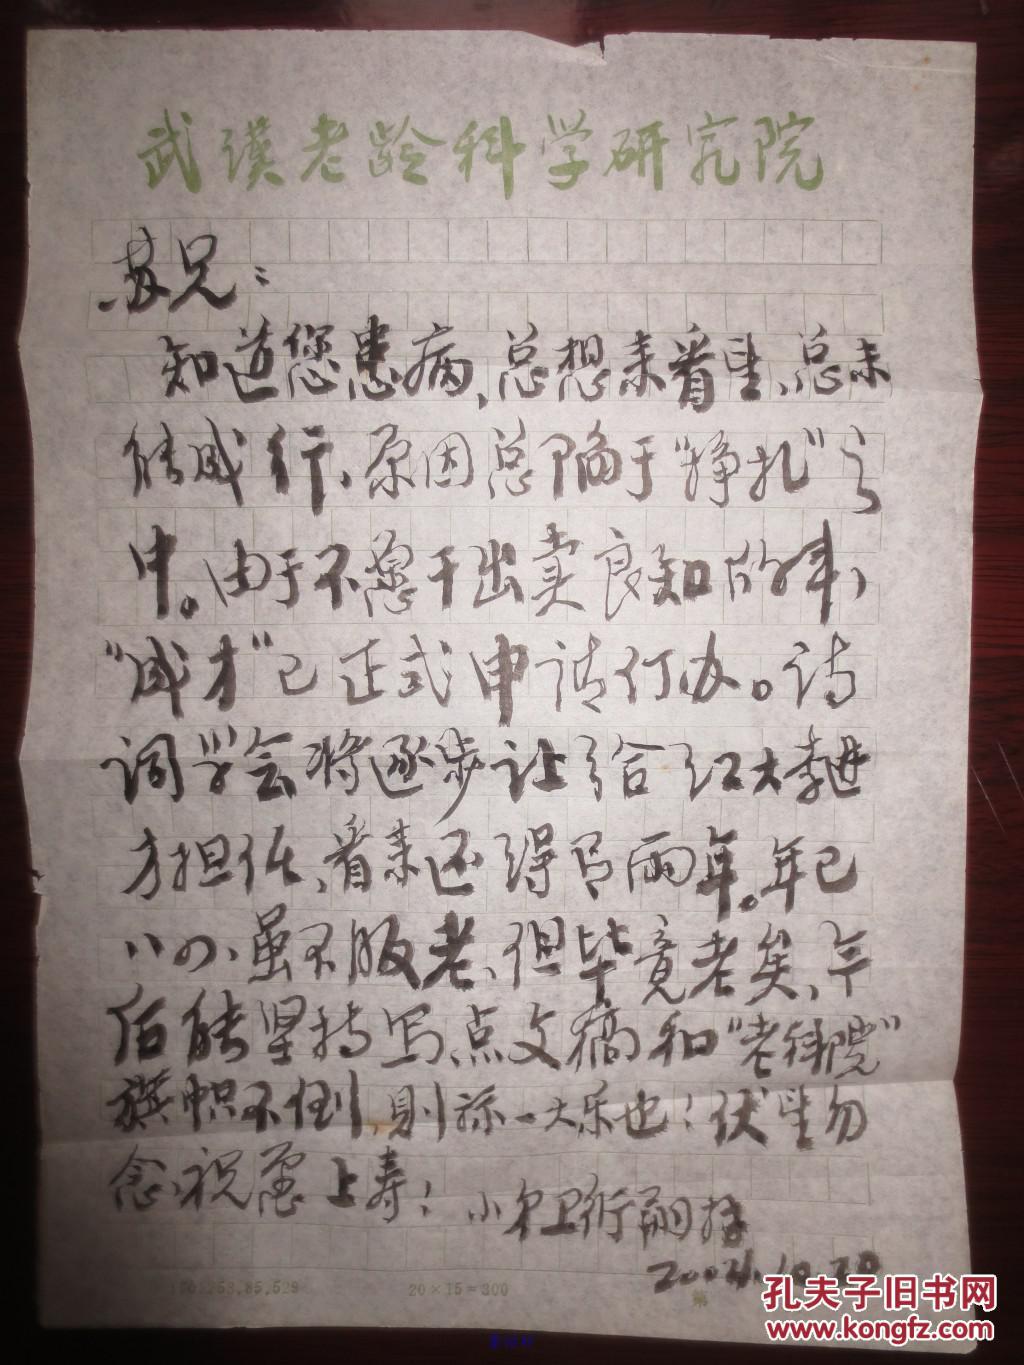 武漢老龄科学研究院
苏兄：
知道您患病、总想来看望、总未
能成行、原因总陷于“挣扎”之
中。由于不愿干出卖良知的事，
“成才”已正式申请停办。诗
词学会将逐步让给江大李进
才担任、看来还得有两年。年已
八四、虽不服老、但毕竟老矣、今
后能坚持写点文稿和“老科院”
旗帜不倒，则称一大乐也！伏望勿
念、祝您上寿！小弟卫衍翮拜
2004.10.20
20×15=300
第
孔夫子旧书网
www.kongfz.com